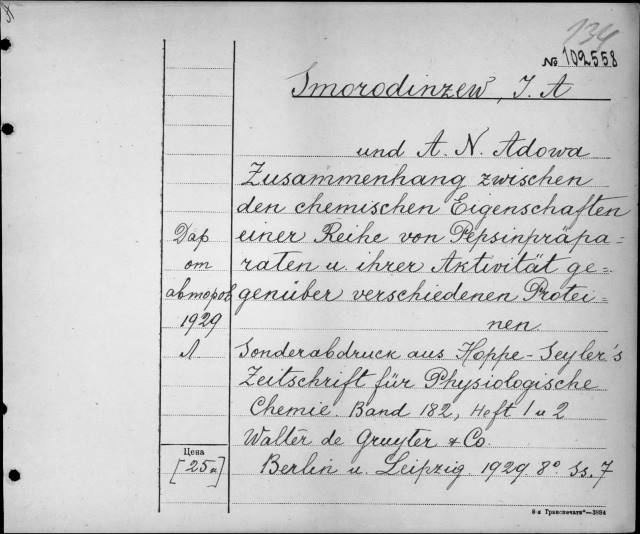 134
№ 102558
Smorodinzew, J. A
und A. N. Adowa
Zusammenhang zwischen
den chemischen Eigenschaften
einer Reihe von Pepsinpräpa-
raten u. ihrer Aktivität ge-
genüber verschiedenen Protei-
nen
Sonderabdruck aus Hoppe-Seyler's
Zeitschrift für Physiologische
Chemie. Band 182, Heft 1 u 2
Walter de Gruyter & Co.
Berlin u. Leipzig 1929 8° Ss. 7
Дар
от
авторов
1929
Л
Цена
[25к]
8-я „Транспечати"—3884